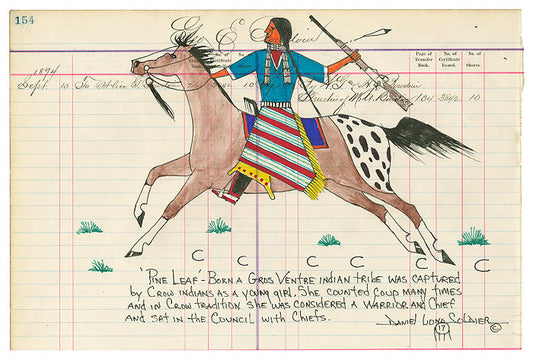 154
Geo E
Page of Transfer Book. No. of Certificate Issued. No. of Shares.
1894
Sept 10 To Alice 10 104 3842 10
'PINE LEAF'- BORN A GROS VENTRE INDIAN TRIBE WAS CAPTURED
by CROW INDIANS AS A YOUNG GIRL. SHE COUNTED COUP MANY TIMES
AND IN CROW TRADITION SHE WAS CONSIDERED A WARRIOR AND CHIEF
AND SAT IN THE COUNCIL WITH CHIEFS.
DANIEL LONG SOLDIER ©
17
C C C C C C